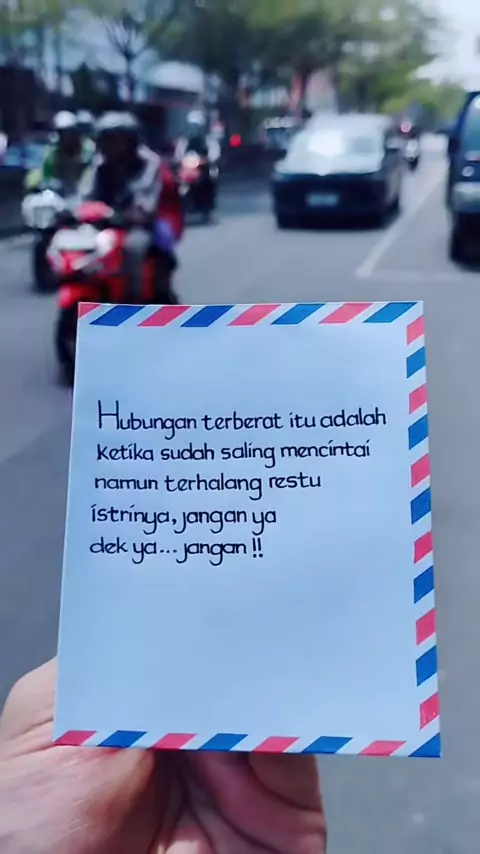 Hubungan terberat itu adalah
ketika sudah saling mencintai
namun terhalang restu
istrinya, jangan ya
dek ya... jangan !!